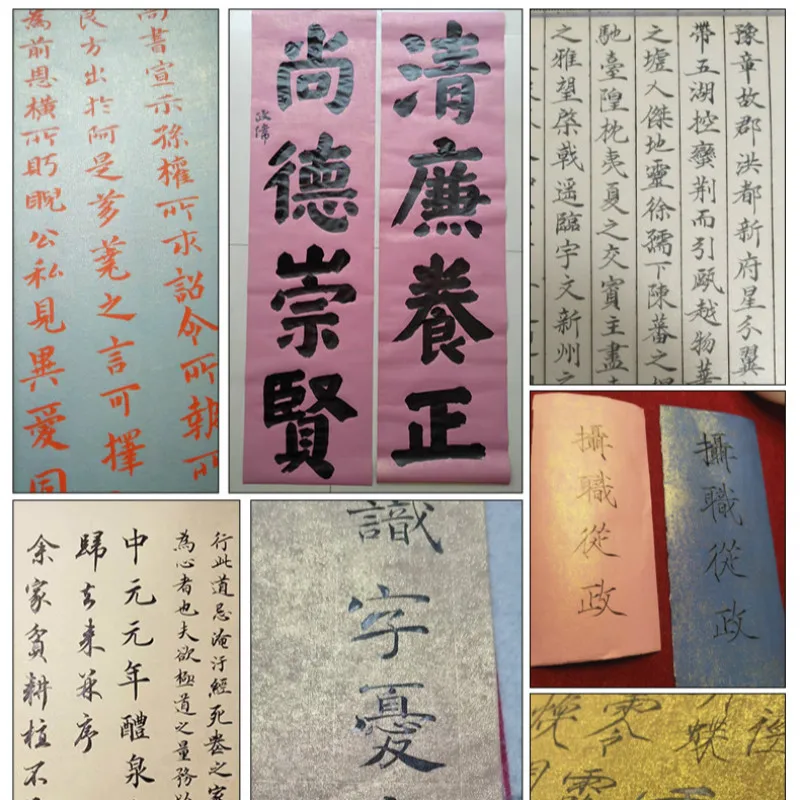 尚書宣示孫權所求詔令所報所
良方出於阿是芻蕘之言可擇
為前恩橫所眄睨公私見異愛同
清廉養正
尚德崇賢
豫章故郡洪都新府星分翼
帶五湖控蠻荊而引甌越物華
之墟人傑地靈徐孺下陳蕃之
馳臺隍枕夷夏之交賓主盡
之雅望棨戟遥臨宇文新州之
攝職從政
攝職從政
行此道忌淹汙經死之家
為心者也夫欲極道之量務
中元元年醴泉
歸去来兮序
余家貧耕植不
識字憂
零